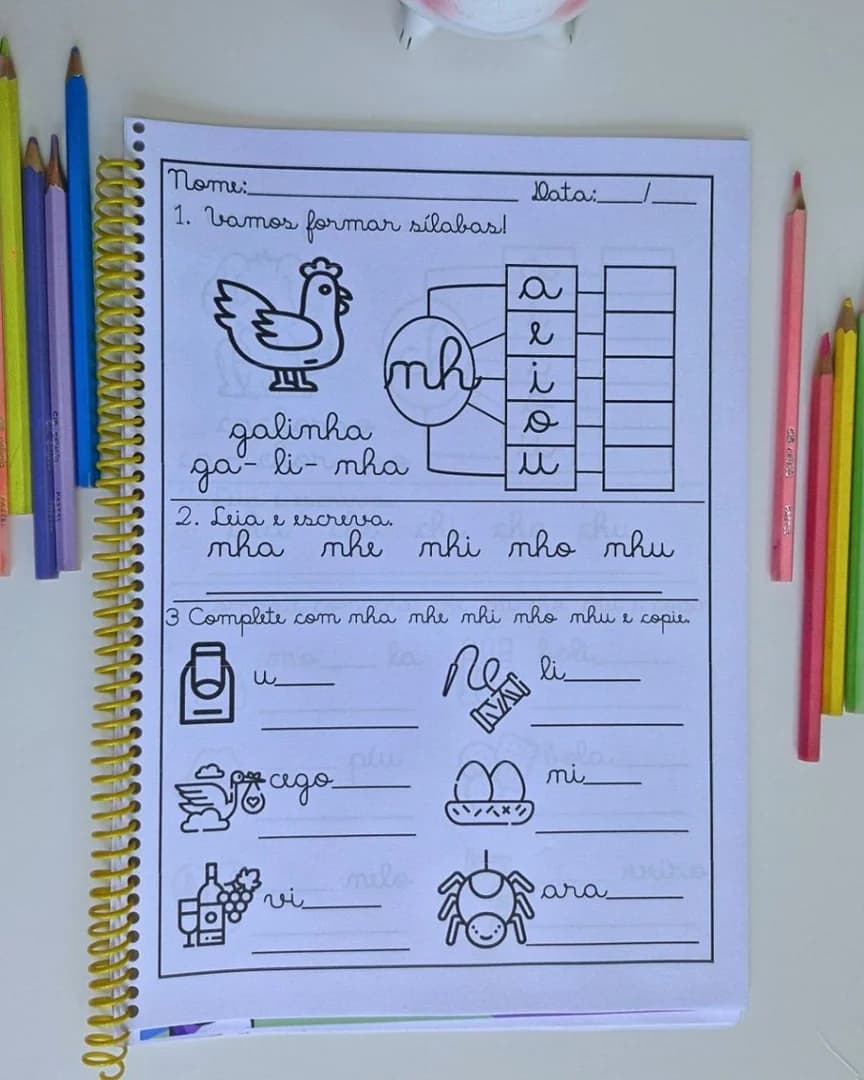 Nome:____________ Data:___/___
1. Vamos formar sílabas!
a
e
nh
i
o
u
galinha
ga-li-nha
2. Leia e escreva.
nha nhe nhi nho nhu
3 Complete com nha nhe nhi nho nhu e copie.
u____ li____
cego____ ni____
vi____ ara____